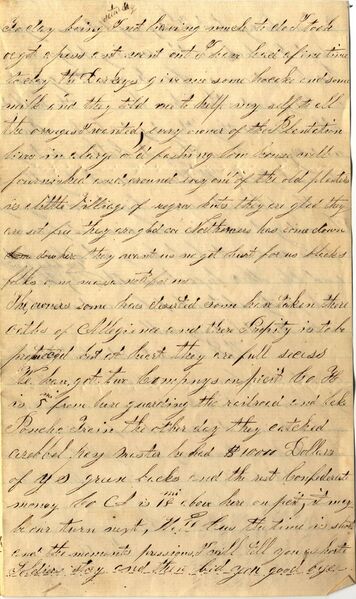 To day being I not having much to do I took
a got a pass and went out I have had a fine time
to day the Darkeys give me some hoecake and some
milk and they told me to help my self to all
the oranges I wanted, every owner of the Plantation
lives in a large old fashing low house well
fournished and around every one of the old planters
is a little village of negro huts they are glad they
are set free they are glad
down here they want us not
folks
The owners some has deserted some has taken there
Oathes of Allegiance and there Property is to be
protected but at heart they are full secess
We have got two Companys on picket Co H
is 5 mi from here guarding the railroad and
the other day they catched
a rebel Pay master he had $10000 Dollars
of US green backs and the rest Confederate
money Co I is 18 mi above here on picket, it may
be our turn next, the time is short
and the moments pressing I will tell you a short
Soldiers Story and then bid you good bye